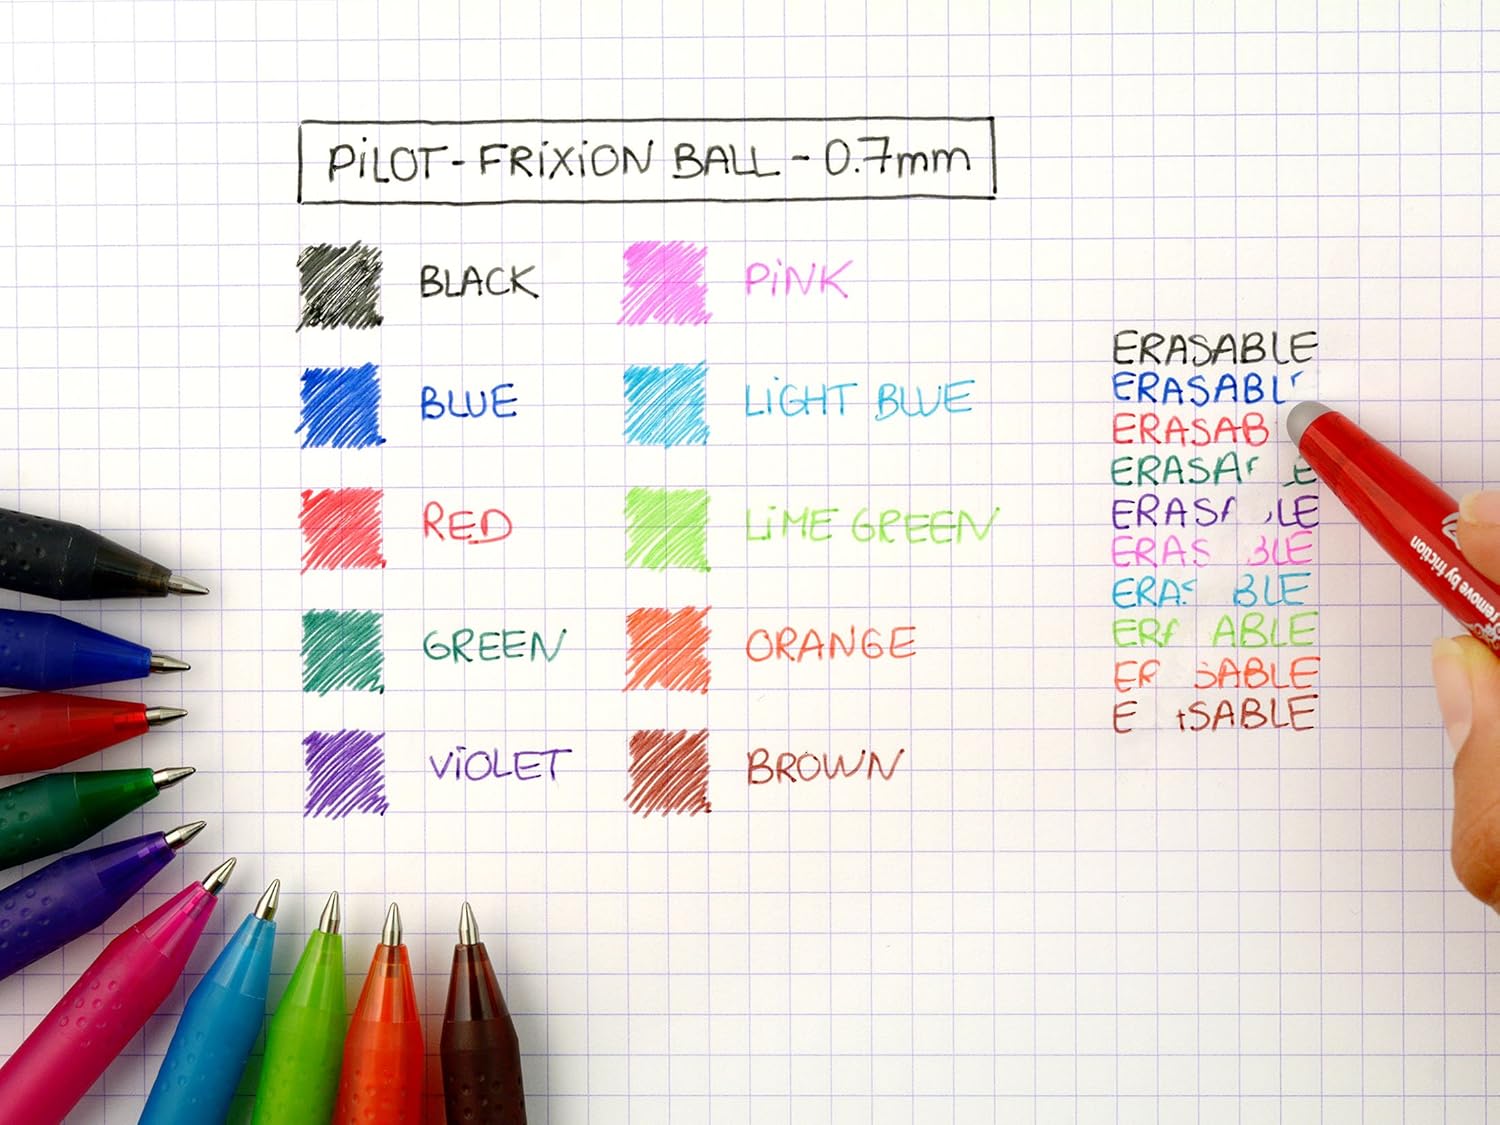 PiLOT - FRiXiON BALL - 0.7mm
BLACK
BLUE
RED
GREEN
ViOLET
PiNK
LiGHT BLUE
LiME GREEN
ORANGE
BROWN
ERASABLE
ERASABL
ERASAB
ERASA E
ERAS LE
ERAS BLE
ERAS BLE
ER ABLE
E SABLE
E SABLE
remove by friction